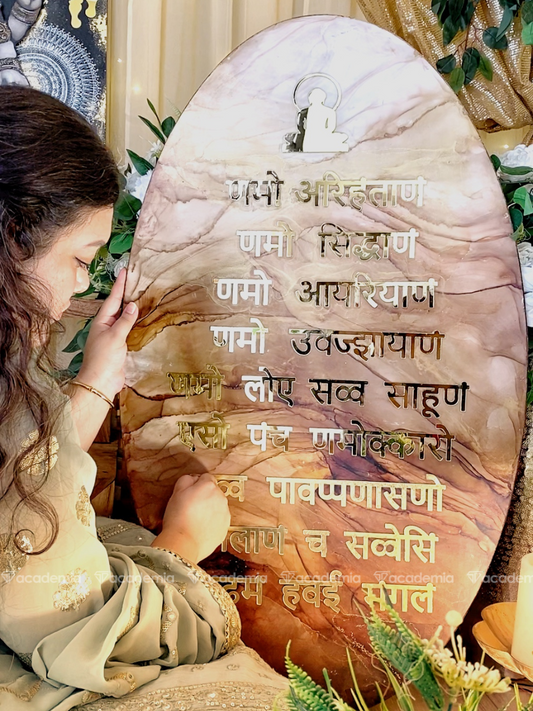 णमो अरिहंताणं
णमो सिद्धाणं
णमो आयरियाणं
णमो उवज्झायाणं
णमो लोए सव्व साहूणं
एसो पंच णमोक्कारो
व्व पावप्पणासणो
लाणं च सव्वेसिं
हमं हवई मंगलं
academia academia academia academia academia academia